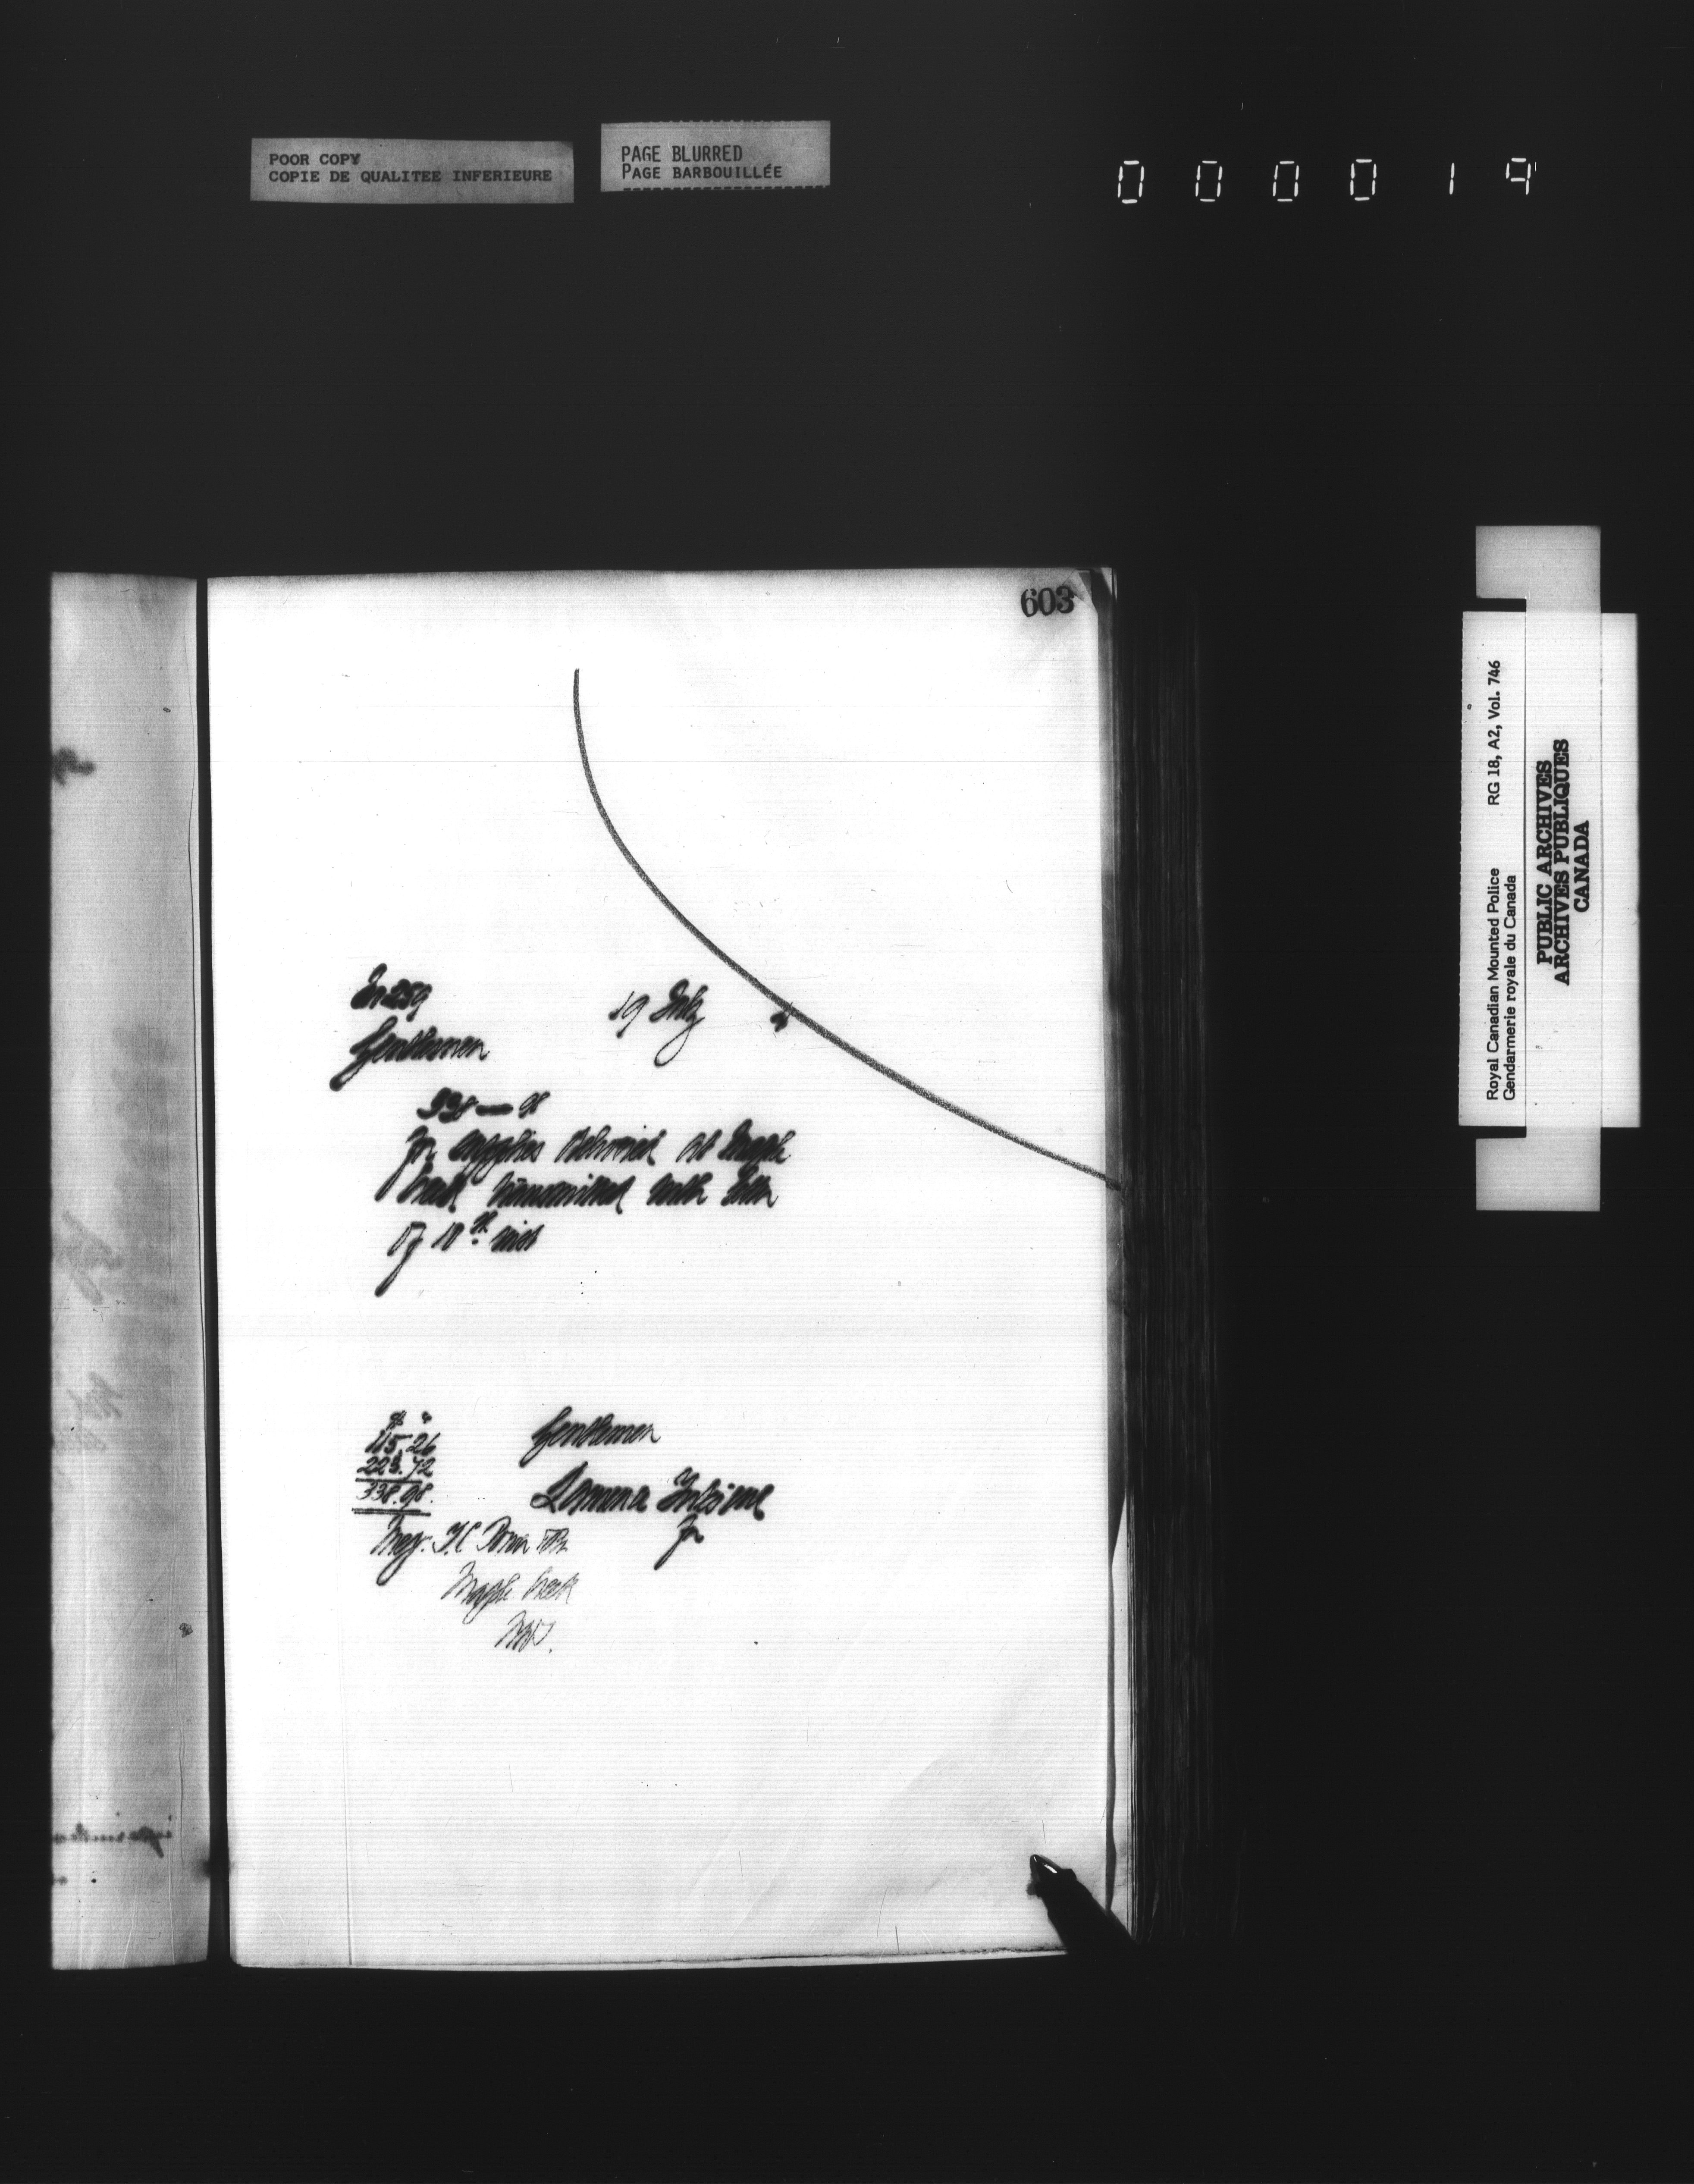 POOR COPY
COPIE DE QUALITEE INFERIEURE
PAGE BLURRED
PAGE BARBOUILLÉE
0 0 0 0 1 9
603
259
19 July
Gentlemen
338 — 98
for supplies delivered at Maple
Creek transmitted with letter
of 18th inst
$ c
115.26
223.72
338.98
Gentlemen
Messr. I.C. Baker
Maple Creek
NWT.
Royal Canadian Mounted Police RG 18, A2, Vol. 746
Gendarmerie royale du Canada
PUBLIC ARCHIVES
ARCHIVES PUBLIQUES
CANADA